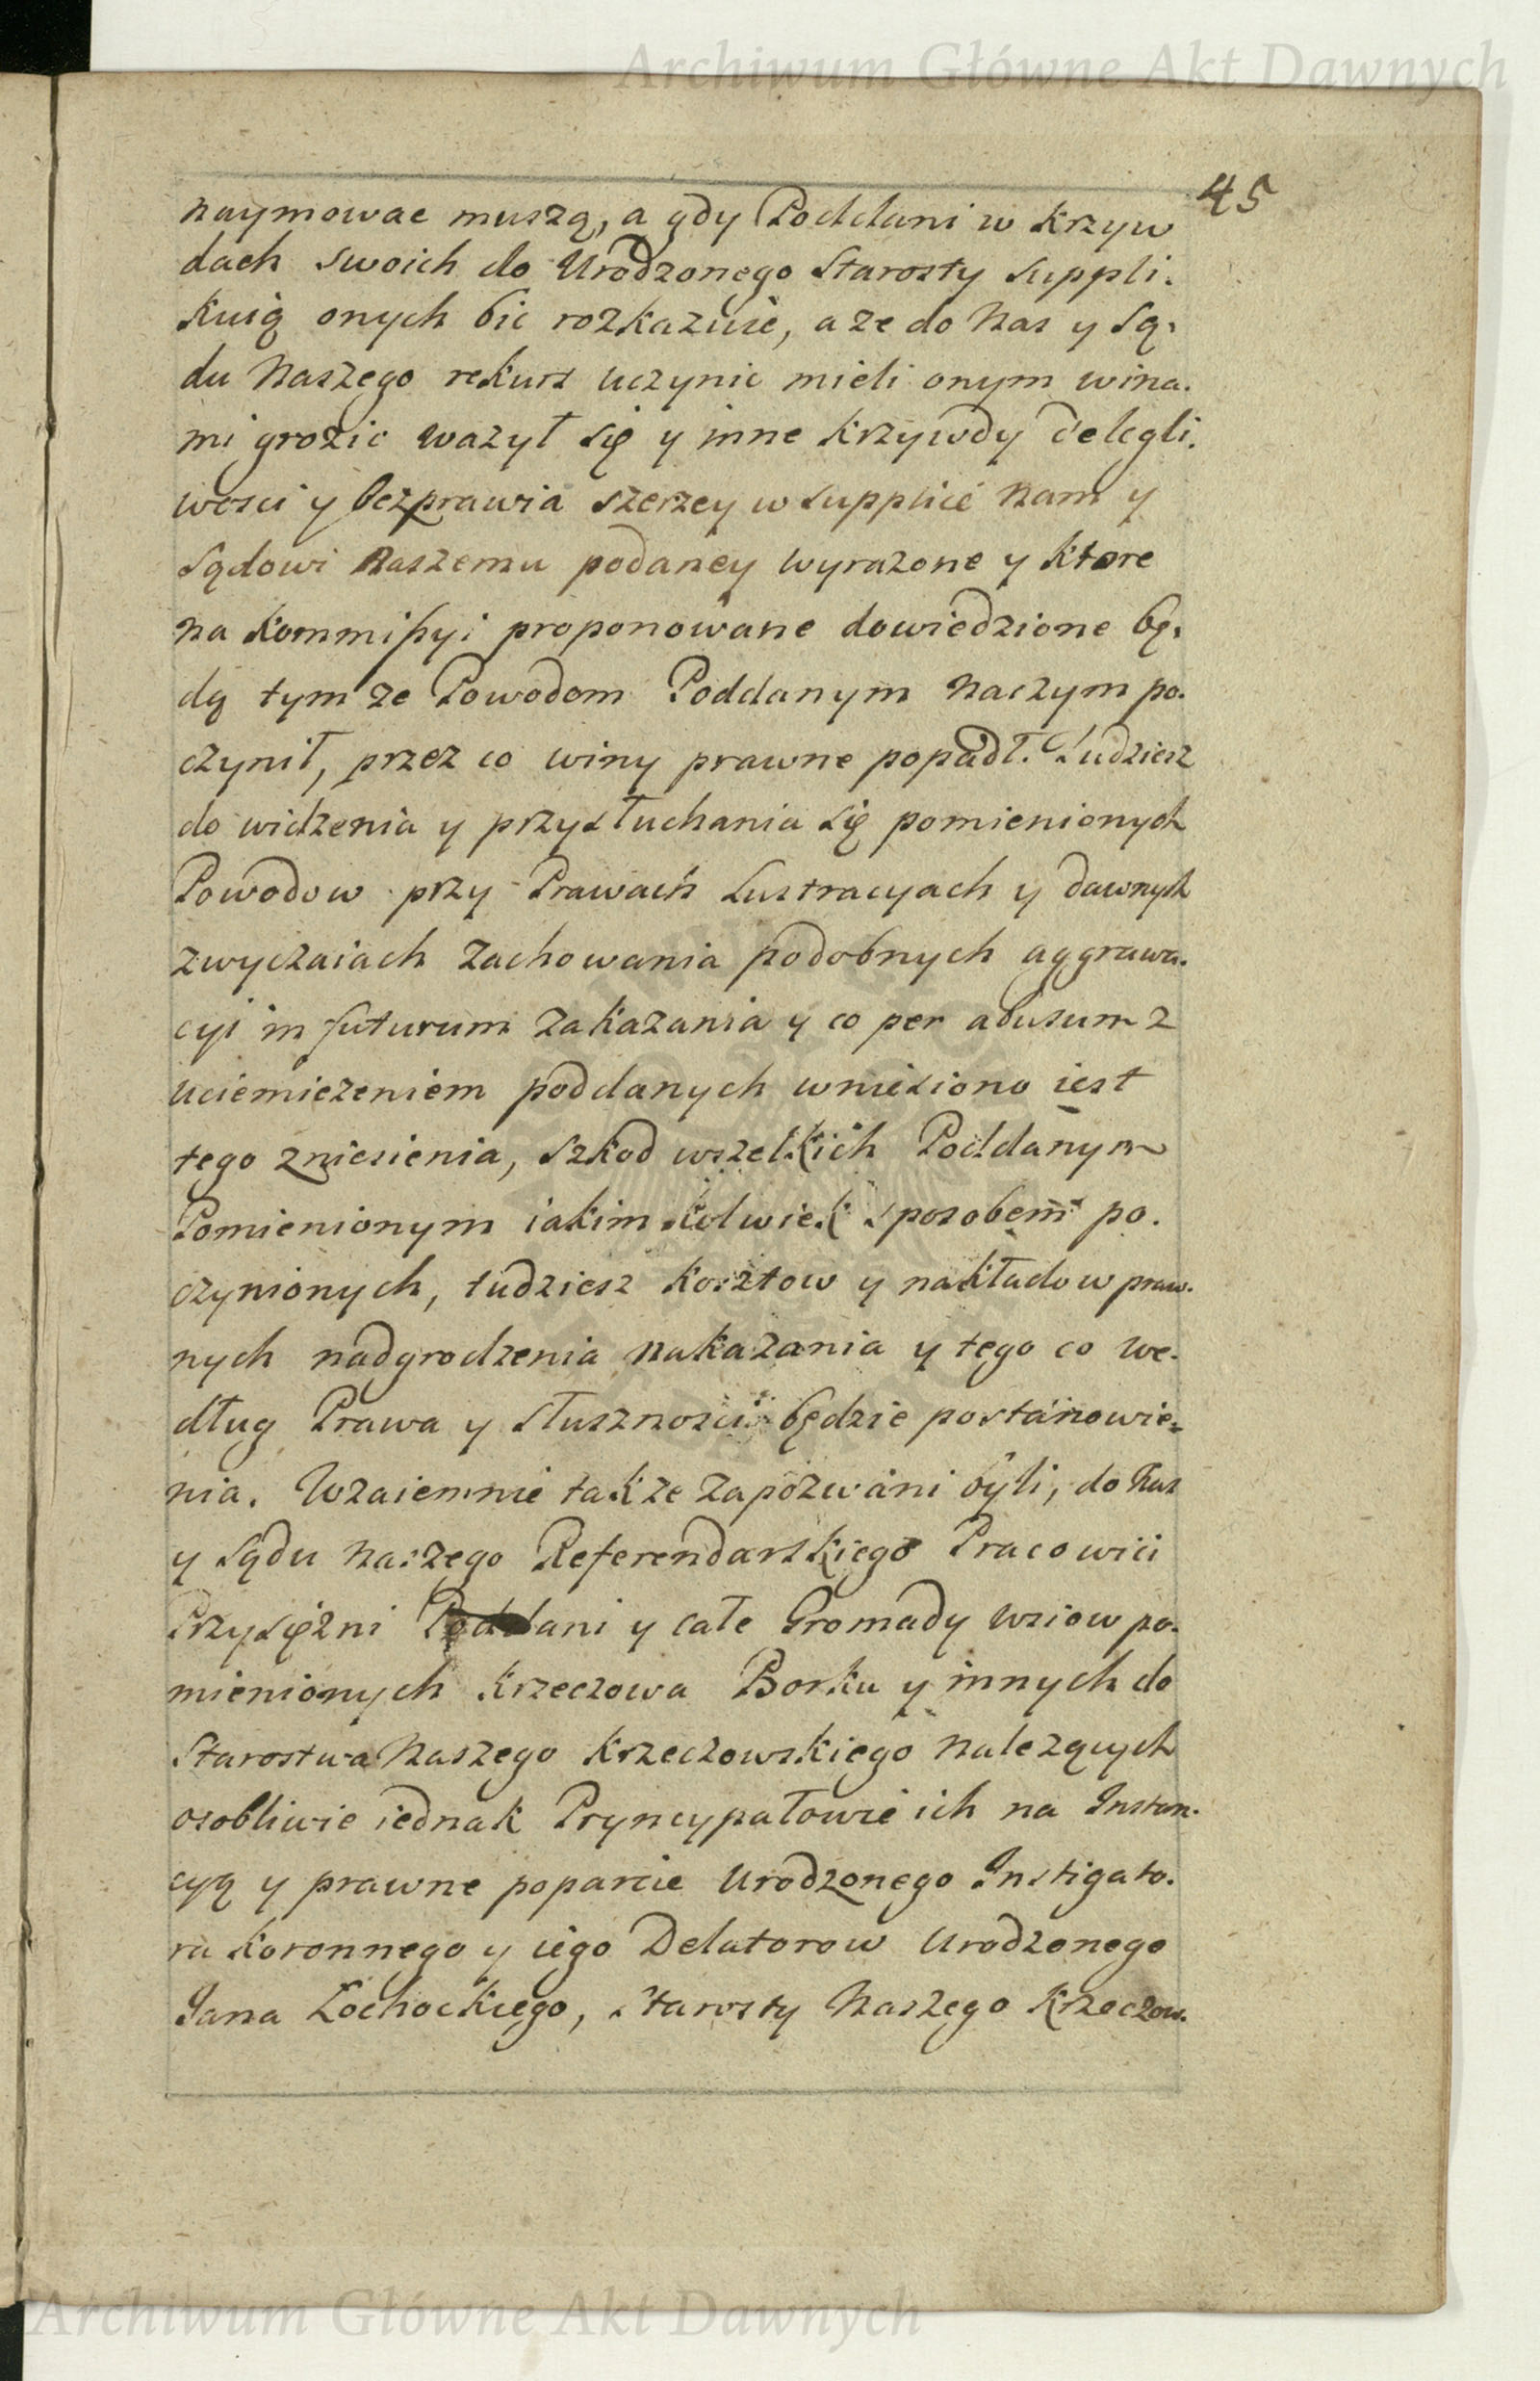 Archiwum Główne Akt Dawnych
45
naymowac muszą, a gdy Poddani w krzyw
dach swoich do Urodzonego Starosty Suppli.
kuią onych bic rozkazuie, a ze do Nas y Są.
du Naszego rekurs uczynic mieli onym wina.
mi grozic wazył się y inne krzywdy dolegli.
wosci y bezprawia szerzey w supplice Nam y
Sądowi Naszemu podaney wyrazone y ktore
na Kommißyi proponowane dowiedzione bę.
dą tym ze Powodom Poddanym Naszym po.
czynił, przez co winy prawne popadł. Tudziesz
do widzenia y przysłuchania się pomienionych
Powodow przy Prawach Lustracyach y dawnych
zwyczaiach zachowania podobnych aggrawa.
cyi in futurum zakazania y co per abusum z
uciemiezeniem poddanych wniesiono iest
tego zniesienia, szkod wszelkich Poddanym
Pomienionym iakimkolwiek sposobem po.
czynionych, tudziesz kosztow y nakładow praw.
nych nadgrodzenia nakazania y tego co we.
dług Prawa y słusznosci będzie postanowie.
nia. Wzaiemnie takze zapozwani byli, do Nas
y Sądu Naszego Referendarskiego Pracowici
Przysięzni Poddani y całe Gromady wsiow po.
mienionych Krzeczowa Borku y innych do
Starostwa Naszego Krzeczowskiego nalezących
osobliwie iednak Pryncypałowie ich na Instan.
cyą y prawne poparcie Urodzonego Instigato.
ra Koronnego y iego Delatorow Urodzonego
Jana Łochockiego, Starosty Naszego Krzeczow.
Archiwum Główne Akt Dawnych